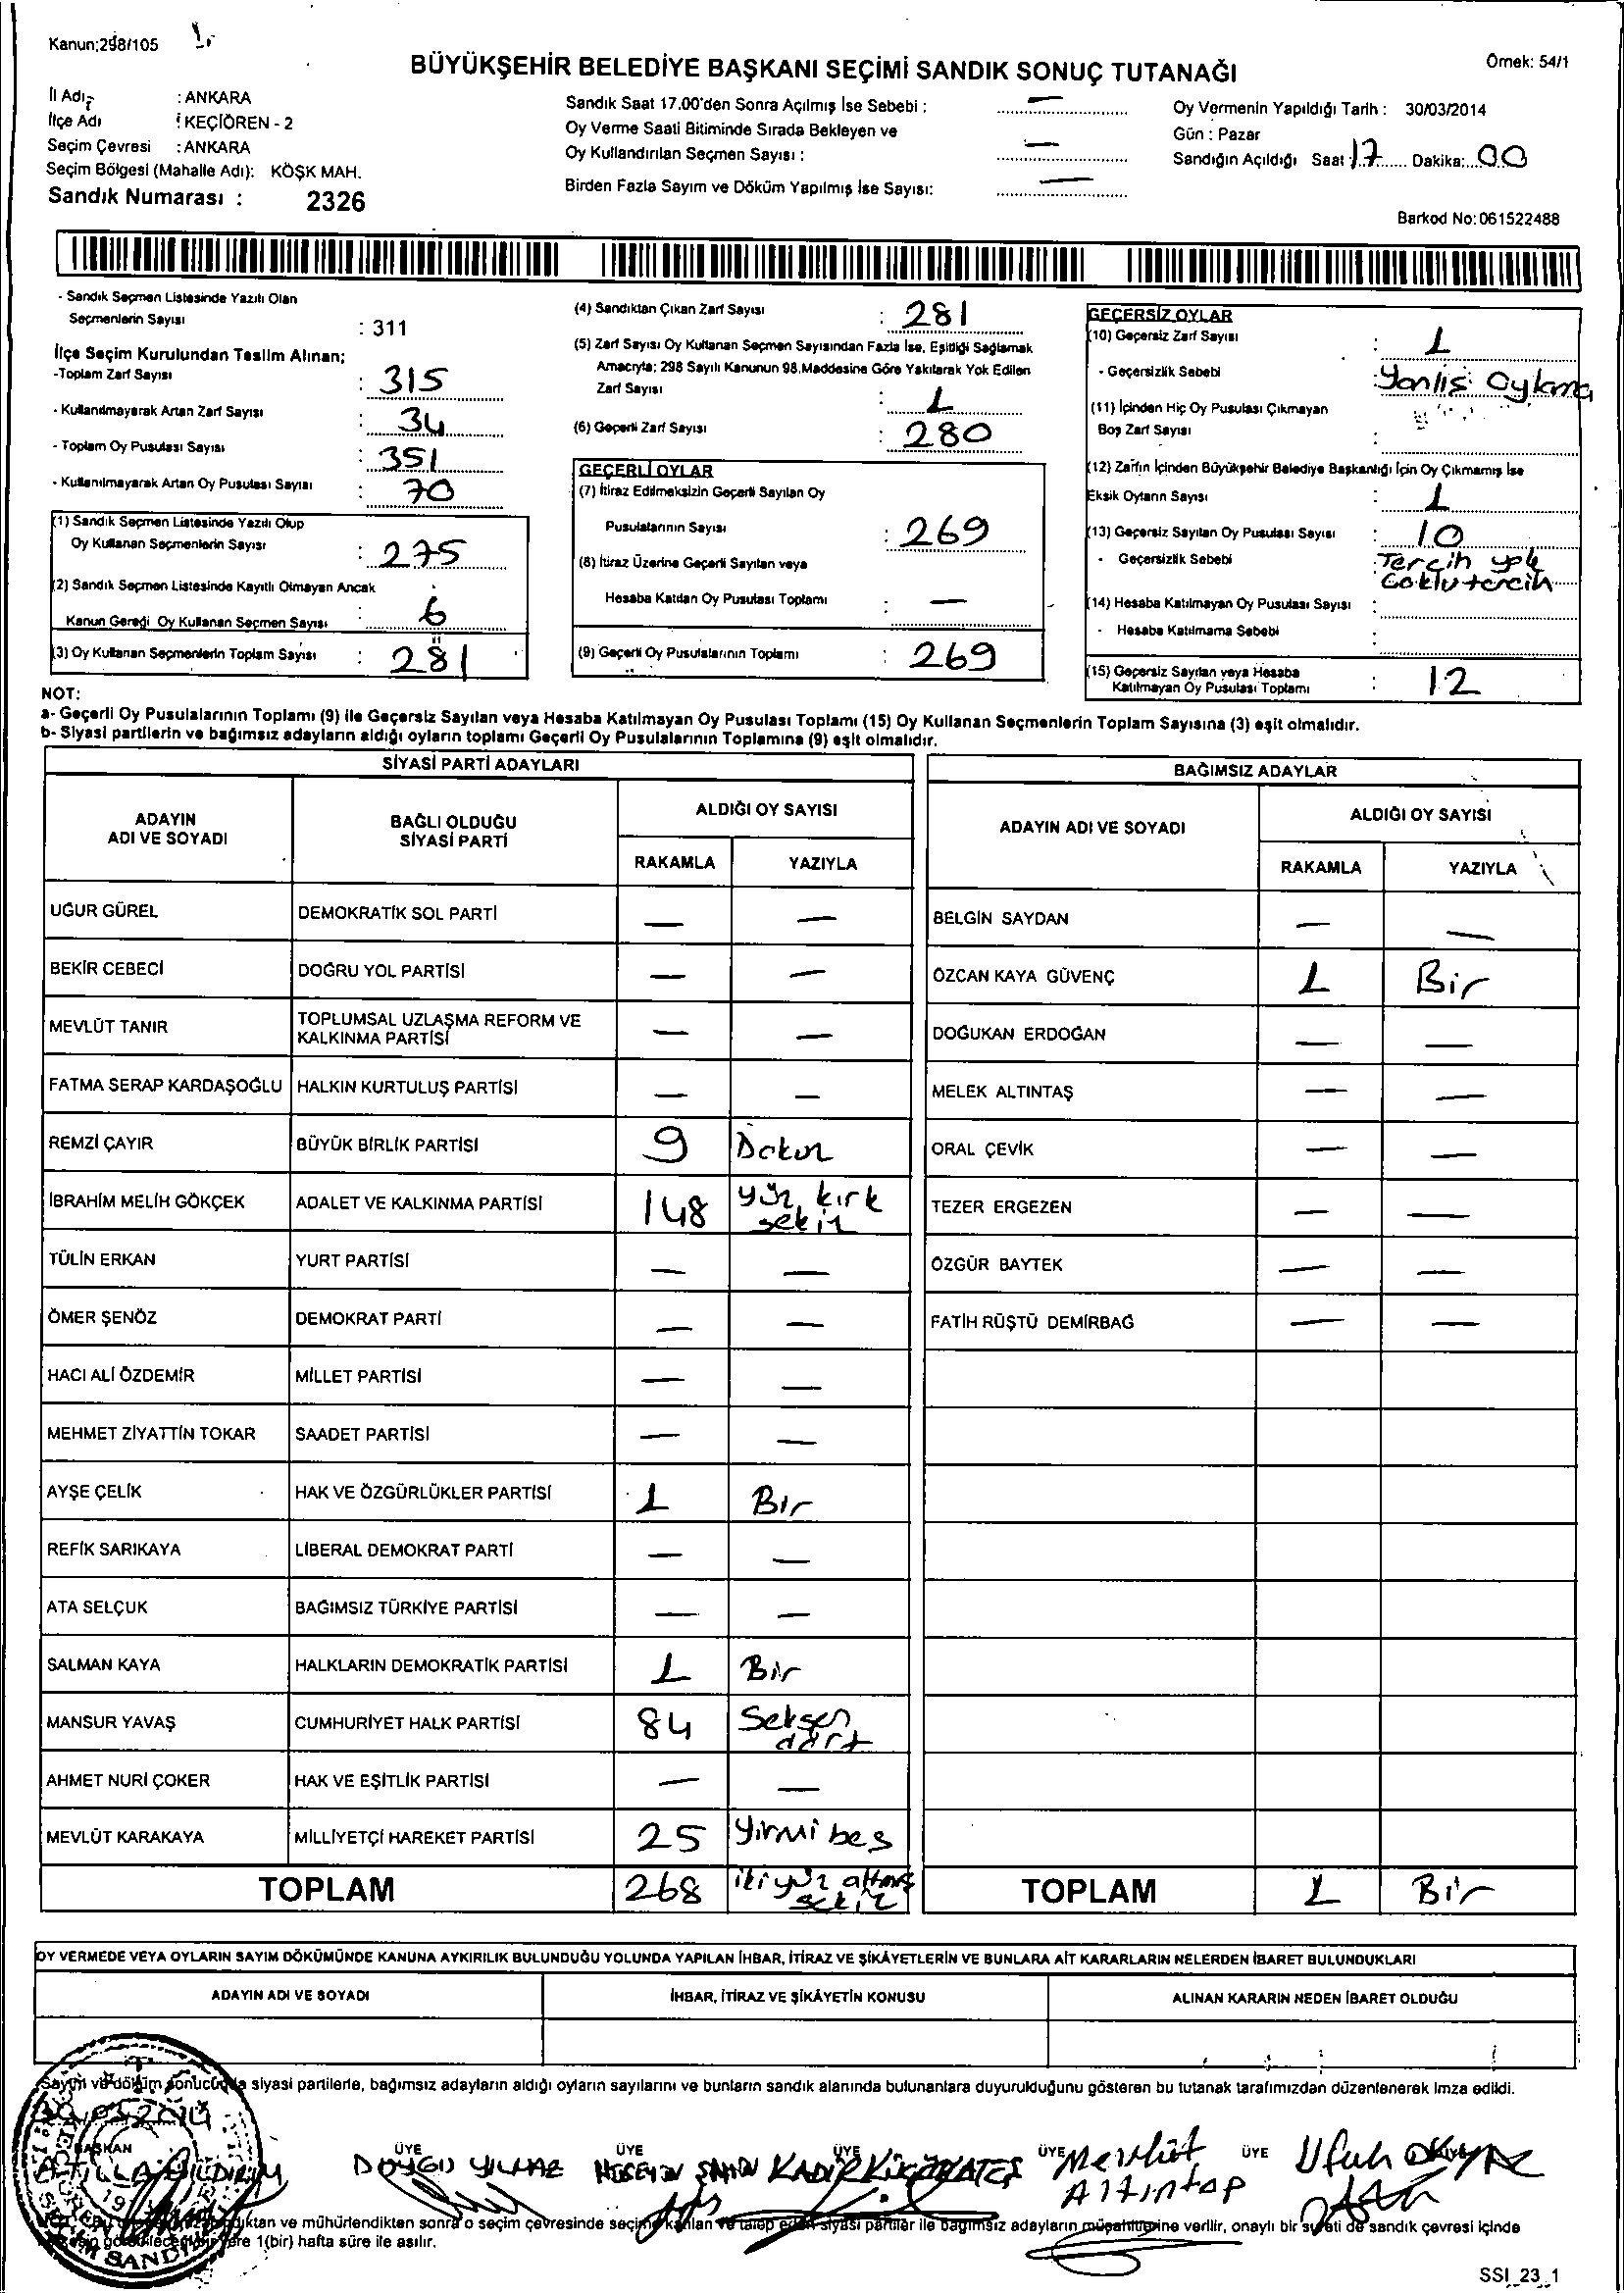 Kanun;298/105
Örnek: 54/1
BÜYÜKŞEHİR BELEDİYE BAŞKANI SEÇİMİ SANDIK SONUÇ TUTANAĞI
İl Adı : ANKARA
İlçe Adı : KEÇİÖREN - 2
Seçim Çevresi : ANKARA
Seçim Bölgesi (Mahalle Adı): KÖŞK MAH.
Sandık Numarası : 2326
Sandık Saat 17.00'den Sonra Açılmış İse Sebebi : —
Oy Verme Saati Bitiminde Sırada Bekleyen ve
Oy Kullandırılan Seçmen Sayısı : —
Birden Fazla Sayım ve Döküm Yapılmış İse Sayısı: —
Oy Vermenin Yapıldığı Tarih : 30/03/2014
Gün : Pazar
Sandığın Açıldığı Saat 17 Dakika: 00
Barkod No:061522488
- Sandık Seçmen Listesinde Yazılı Olan
Seçmenlerin Sayısı : 311
İlçe Seçim Kurulundan Teslim Alınan;
-Toplam Zarf Sayısı : 315
- Kullanılmayarak Artan Zarf Sayısı : 34
- Toplam Oy Pusulası Sayısı : 351
- Kullanılmayarak Artan Oy Pusulası Sayısı : 70
(1) Sandık Seçmen Listesinde Yazılı Olup
Oy Kullanan Seçmenlerin Sayısı : 275
(2) Sandık Seçmen Listesinde Kayıtlı Olmayan Ancak
Kanun Gereği Oy Kullanan Seçmen Sayısı : 6
(3) Oy Kullanan Seçmenlerin Toplam Sayısı : 281
(4) Sandıktan Çıkan Zarf Sayısı : 281
(5) Zarf Sayısı Oy Kullanan Seçmen Sayısından Fazla İse, Eşitliği Sağlamak
Amacıyla; 298 Sayılı Kanunun 98.Maddesine Göre Yakılarak Yok Edilen
Zarf Sayısı : 1
(6) Geçerli Zarf Sayısı : 280
GEÇERLİ OYLAR
(7) İtiraz Edilmeksizin Geçerli Sayılan Oy
Pusulalarının Sayısı : 269
(8) İtiraz Üzerine Geçerli Sayılan veya
Hesaba Katılan Oy Pusulası Toplamı : —
(9) Geçerli Oy Pusulalarının Toplamı : 269
GEÇERSİZ OYLAR
(10) Geçersiz Zarf Sayısı : 1
- Geçersizlik Sebebi : Yanlış Oylama
(11) İçinden Hiç Oy Pusulası Çıkmayan
Boş Zarf Sayısı :
(12) Zarfın İçinden Büyükşehir Belediye Başkanlığı İçin Oy Çıkmamış İse
Eksik Oyların Sayısı : 1
(13) Geçersiz Sayılan Oy Pusulası Sayısı : 10
- Geçersizlik Sebebi : Tercih yok
Çoklu tercih
(14) Hesaba Katılmayan Oy Pusulası Sayısı :
- Hesaba Katılmama Sebebi :
(15) Geçersiz Sayılan veya Hesaba
Katılmayan Oy Pusulası Toplamı : 12
NOT:
a- Geçerli Oy Pusulalarının Toplamı (9) ile Geçersiz Sayılan veya Hesaba Katılmayan Oy Pusulası Toplamı (15) Oy Kullanan Seçmenlerin Toplam Sayısına (3) eşit olmalıdır.
b- Siyasi partilerin ve bağımsız adayların aldığı oyların toplamı Geçerli Oy Pusulalarının Toplamına (9) eşit olmalıdır.
SİYASİ PARTİ ADAYLARI
ADAYIN ADI VE SOYADI BAĞLI OLDUĞU SİYASİ PARTİ ALDIĞI OY SAYISI
RAKAMLA YAZIYLA
UĞUR GÜREL DEMOKRATİK SOL PARTİ — —
BEKİR CEBECİ DOĞRU YOL PARTİSİ — —
MEVLÜT TANIR TOPLUMSAL UZLAŞMA REFORM VE KALKINMA PARTİSİ — —
FATMA SERAP KARDAŞOĞLU HALKIN KURTULUŞ PARTİSİ — —
REMZİ ÇAYIR BÜYÜK BİRLİK PARTİSİ 9 Dokuz
İBRAHİM MELİH GÖKÇEK ADALET VE KALKINMA PARTİSİ 148 yüz kırk sekiz
TÜLİN ERKAN YURT PARTİSİ — —
ÖMER ŞENÖZ DEMOKRAT PARTİ — —
HACI ALİ ÖZDEMİR MİLLET PARTİSİ — —
MEHMET ZİYATTİN TOKAR SAADET PARTİSİ — —
AYŞE ÇELİK HAK VE ÖZGÜRLÜKLER PARTİSİ 1 Bir
REFİK SARIKAYA LİBERAL DEMOKRAT PARTİ — —
ATA SELÇUK BAĞIMSIZ TÜRKİYE PARTİSİ — —
SALMAN KAYA HALKLARIN DEMOKRATİK PARTİSİ 1 Bir
MANSUR YAVAŞ CUMHURİYET HALK PARTİSİ 84 Seksen dört
AHMET NURİ ÇOKER HAK VE EŞİTLİK PARTİSİ — —
MEVLÜT KARAKAYA MİLLİYETÇİ HAREKET PARTİSİ 25 Yirmi beş
TOPLAM 268 iki yüz altmış sekiz
BAĞIMSIZ ADAYLAR
ADAYIN ADI VE SOYADI ALDIĞI OY SAYISI
RAKAMLA YAZIYLA
BELGİN SAYDAN — —
ÖZCAN KAYA GÜVENÇ 1 Bir
DOĞUKAN ERDOĞAN — —
MELEK ALTINTAŞ — —
ORAL ÇEVİK — —
TEZER ERGEZEN — —
ÖZGÜR BAYTEK — —
FATİH RÜŞTÜ DEMİRBAĞ — —
TOPLAM 1 Bir
OY VERMEDE VEYA OYLARIN SAYIM DÖKÜMÜNDE KANUNA AYKIRILIK BULUNDUĞU YOLUNDA YAPILAN İHBAR, İTİRAZ VE ŞİKÂYETLERİN VE BUNLARA AİT KARARLARIN NELERDEN İBARET BULUNDUKLARI
ADAYIN ADI VE SOYADI İHBAR, İTİRAZ VE ŞİKÂYETİN KONUSU ALINAN KARARIN NEDEN İBARET OLDUĞU
Sayım ve döküm sonucunda siyasi partilerle, bağımsız adayların aldığı oyların sayılarını ve bunların sandık alanında bulunanlara duyurulduğunu gösteren bu tutanak tarafımızdan düzenlenerek imza edildi.
BAŞKAN ÜYE ÜYE ÜYE ÜYE ÜYE
ATİLLA YILDIRIM DUYGU YILMAZ HÜSEYİN ŞAHİN KADİR KÜÇÜKATEŞ Mevlüt Altıntop Ufuk
sonra o seçim çevresinde seçime katılan ve talep eden siyasi partiler ile bağımsız adayların müşahitlerine verilir, onaylı bir sureti de sandık çevresi içinde
1(bir) hafta süre ile asılır.
SSI_23_1